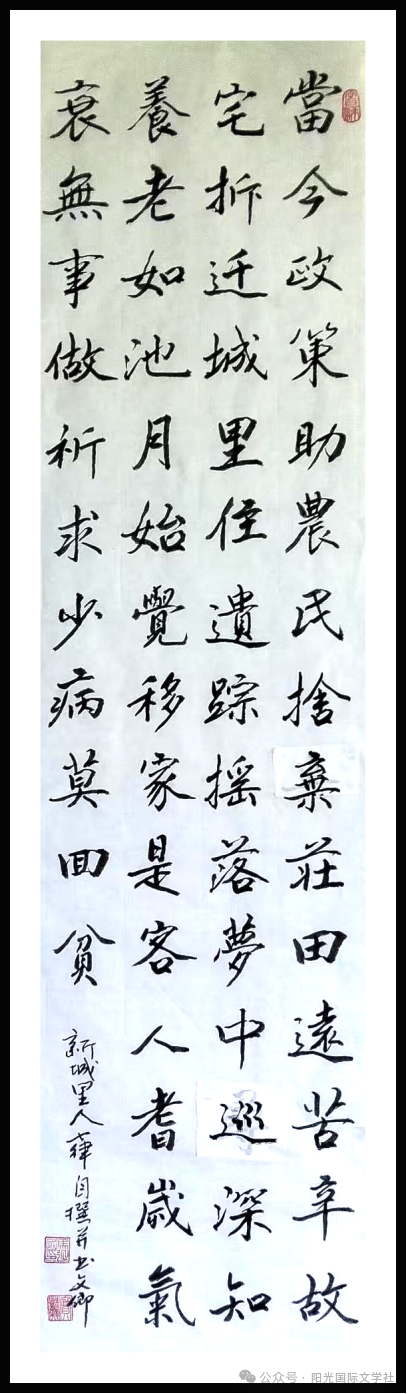 當今政策助農民捨棄莊田遠苦辛故
宅拆迁城里住遺踪摇落夢中巡深知
養老如池月始覺移家是客人耆歲氣
衰無事做祈求少病莫回貧
新城里人 自撰并书文卿
公众号 · 阳光国际文学社